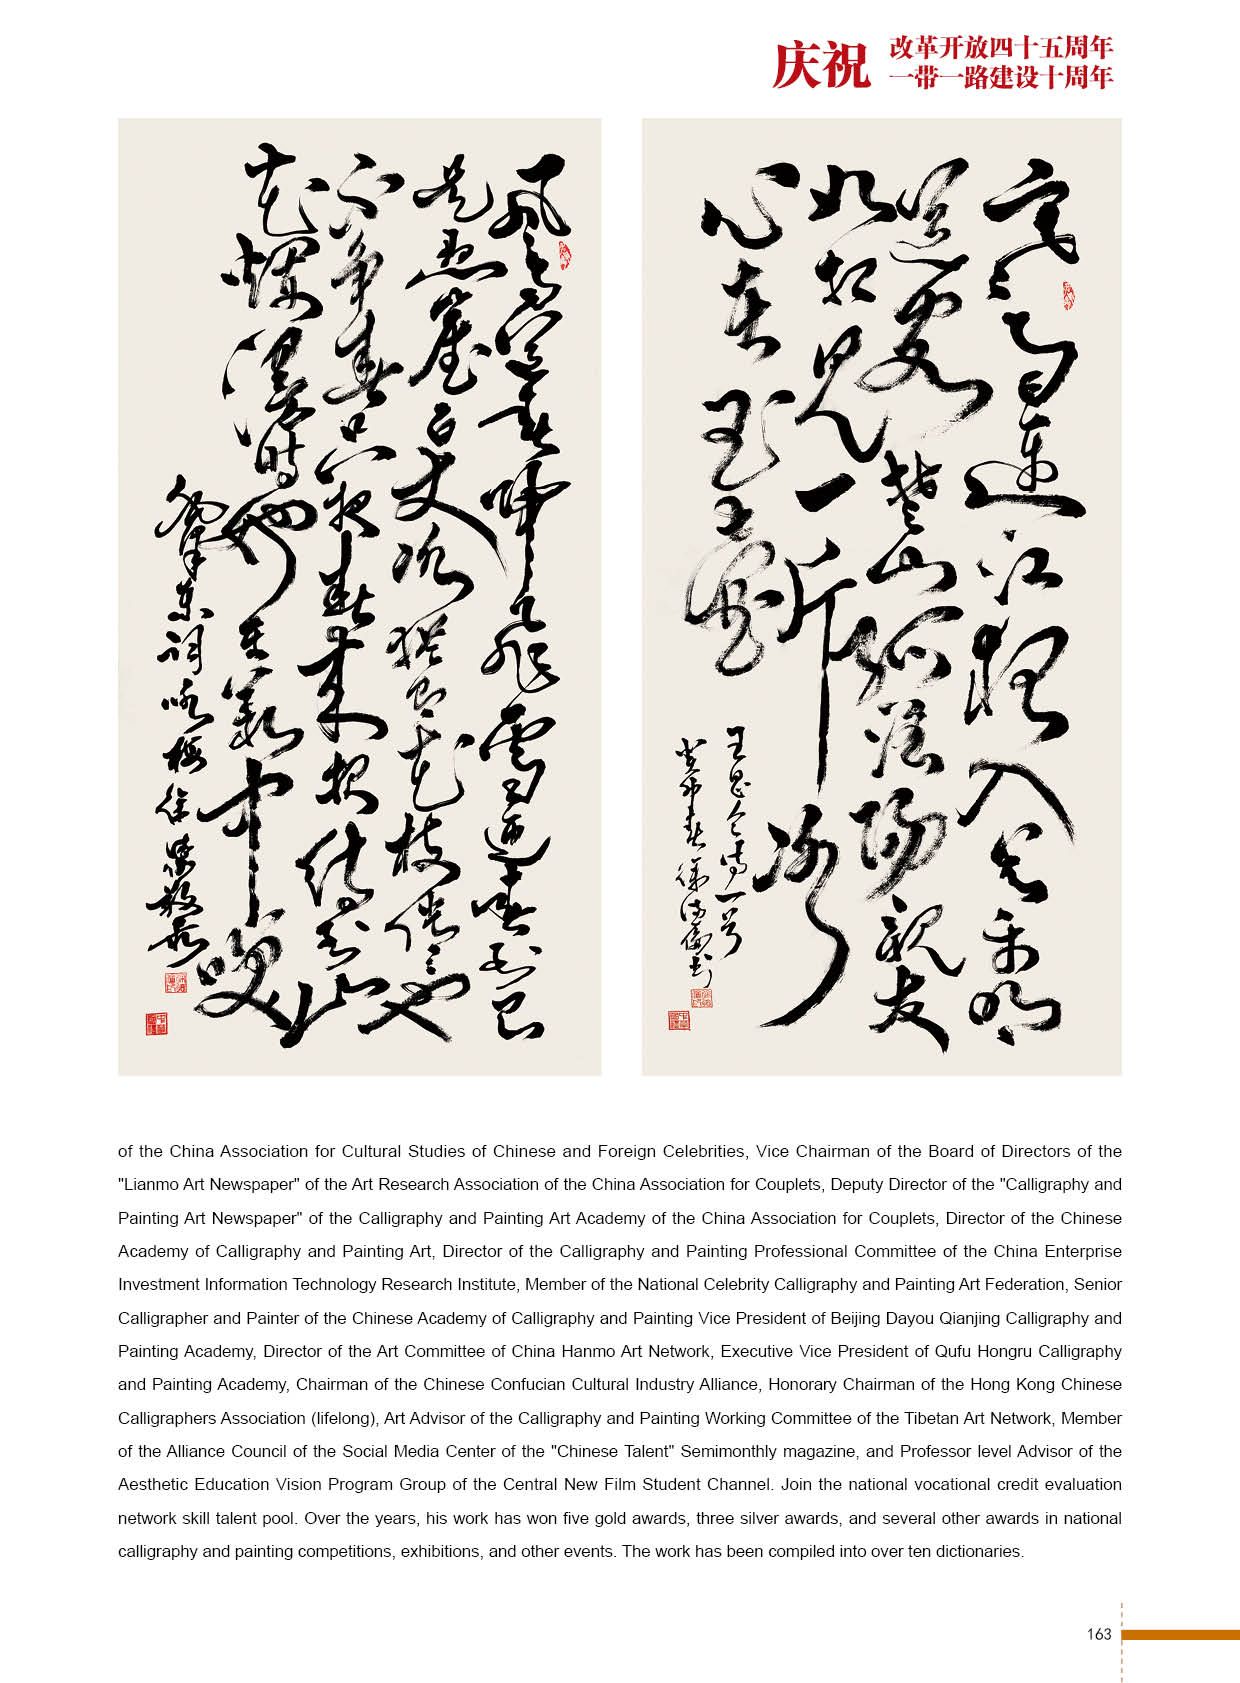 庆祝
改革开放四十五周年
一带一路建设十周年
寒雨连江夜入吴平明
送客楚山孤洛阳亲友
如相见一片冰
心在玉壶
王昌龄诗一首
癸卯春徐
风雨送春归飞雪迎春到已
是悬崖百丈冰犹有花枝俏俏也
不争春只把春来报待到山
花烂漫时她在丛中笑
东词咏梅徐
of the China Association for Cultural Studies of Chinese and Foreign Celebrities, Vice Chairman of the Board of Directors of the
"Lianmo Art Newspaper" of the Art Research Association of the China Association for Couplets, Deputy Director of the "Calligraphy and
Painting Art Newspaper" of the Calligraphy and Painting Art Academy of the China Association for Couplets, Director of the Chinese
Academy of Calligraphy and Painting Art, Director of the Calligraphy and Painting Professional Committee of the China Enterprise
Investment Information Technology Research Institute, Member of the National Celebrity Calligraphy and Painting Art Federation, Senior
Calligrapher and Painter of the Chinese Academy of Calligraphy and Painting Vice President of Beijing Dayou Qianjing Calligraphy and
Painting Academy, Director of the Art Committee of China Hanmo Art Network, Executive Vice President of Qufu Hongru Calligraphy
and Painting Academy, Chairman of the Chinese Confucian Cultural Industry Alliance, Honorary Chairman of the Hong Kong Chinese
Calligraphers Association (lifelong), Art Advisor of the Calligraphy and Painting Working Committee of the Tibetan Art Network, Member
of the Alliance Council of the Social Media Center of the "Chinese Talent" Semimonthly magazine, and Professor level Advisor of the
Aesthetic Education Vision Program Group of the Central New Film Student Channel. Join the national vocational credit evaluation
network skill talent pool. Over the years, his work has won five gold awards, three silver awards, and several other awards in national
calligraphy and painting competitions, exhibitions, and other events. The work has been compiled into over ten dictionaries.
163